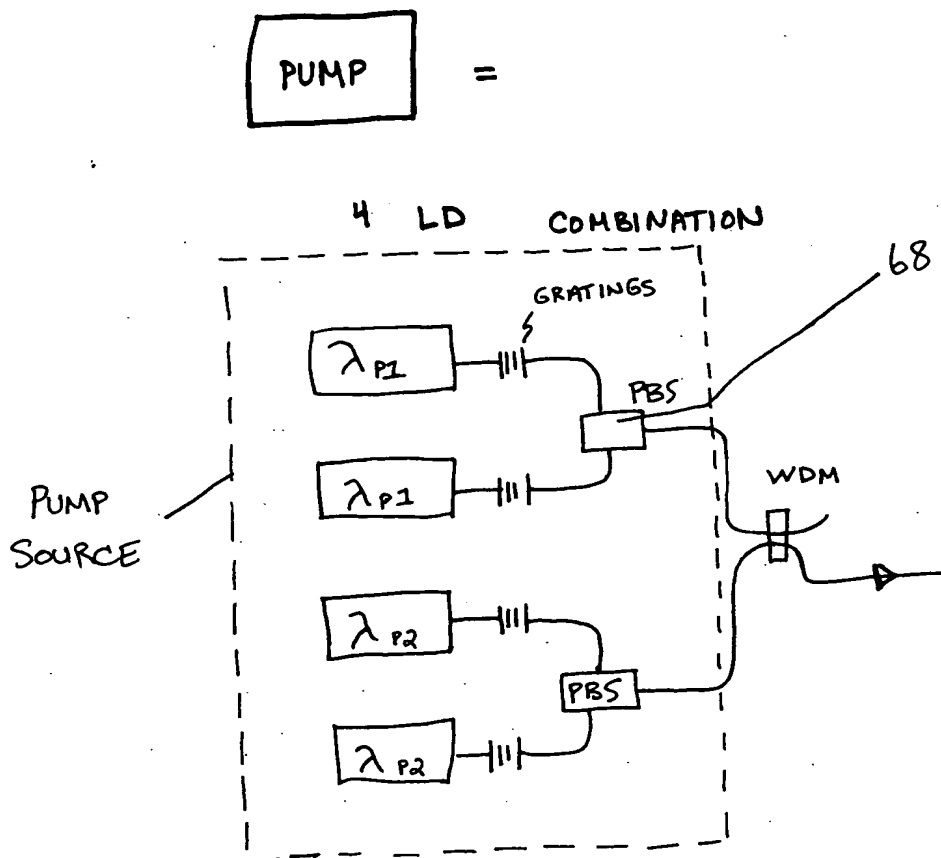 PUMP =
4 LD COMBINATION
68
GRATINGS
λP1
PBS
λP1
WDM
PUMP
SOURCE
λP2
PBS
λP2